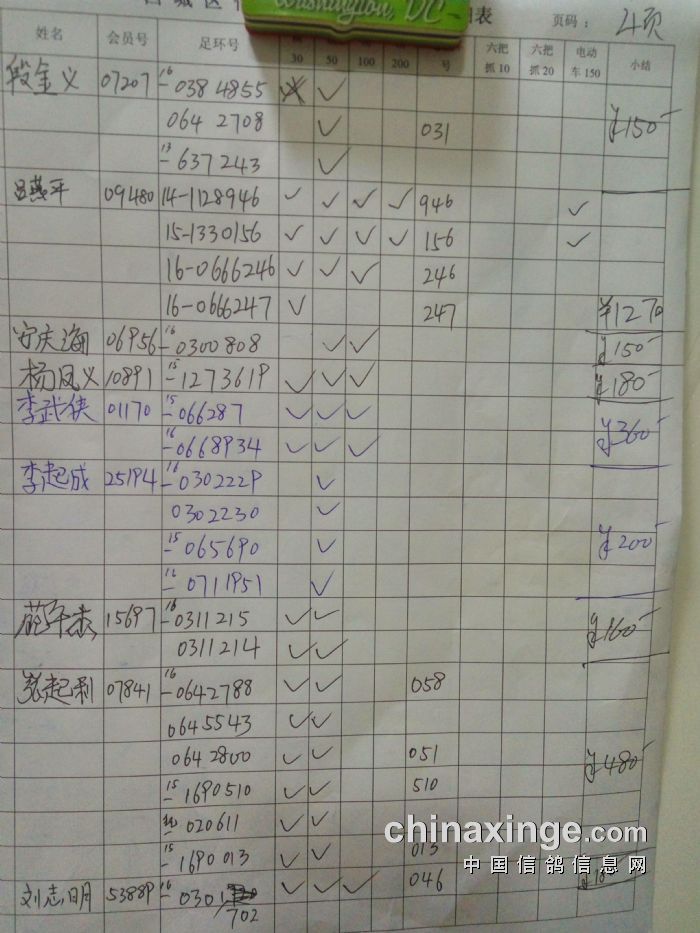 Washington, DC
表 页码： 4页
姓名 会员号 足环号 30 50 100 200 号 六把抓10 六把抓20 电动车150 小结
段金义 07207 16-0384855 ✓
064 2708 ✓ 031 ¥150-
13-637243 ✓
吕燕平 09480 14-1128946 ✓ ✓ ✓ ✓ 946 ✓
15-1330156 ✓ ✓ ✓ ✓ 156 ✓
16-0666246 ✓ ✓ ✓ 246
16-0666247 ✓ 247 ¥1270
安庆海 06956 16-0300808 ✓ ✓ ¥150-
杨凤义 10891 15-1273619 ✓ ✓ ✓ ¥180-
李武侠 01170 15-066287 ✓ ✓ ✓
16-0668934 ✓ ✓ ✓ ¥360-
李起成 25194 16-0302229 ✓
0302230 ✓
15-065690 ✓ ¥200-
12-0711951 ✓
15697 16-0311215 ✓ ✓ ¥160-
0311214 ✓ ✓
张起利 07841 16-0642788 ✓ ✓ 058
0645543 ✓ ✓
0642800 ✓ ✓ 051 ¥480-
15-1690510 ✓ ✓ 510
020611 ✓ ✓
15-1690013 ✓ ✓ 013
刘志明 53889 16-0301702 ✓ ✓ ✓ 046
chinaxinge.com
中国信鸽信息网